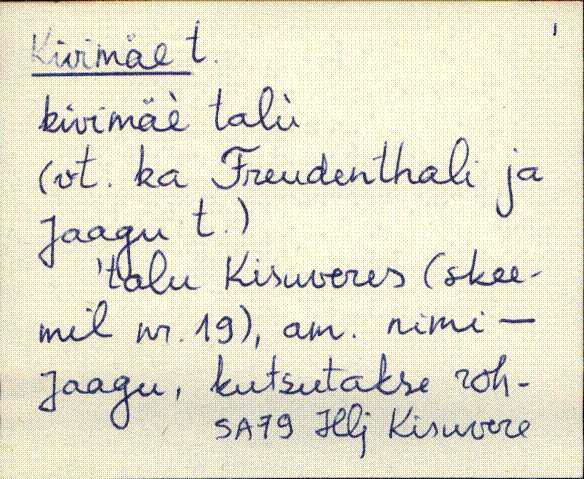 Kivimäe t.
kivimäè talù
(vt. ka Freudenthali ja
Jaagu t.)
'talu Kisuveres (skee-
mil nr. 19), am. nimi —
Jaagu, kutsutakse roh-
SA79 Hlj Kisuvere